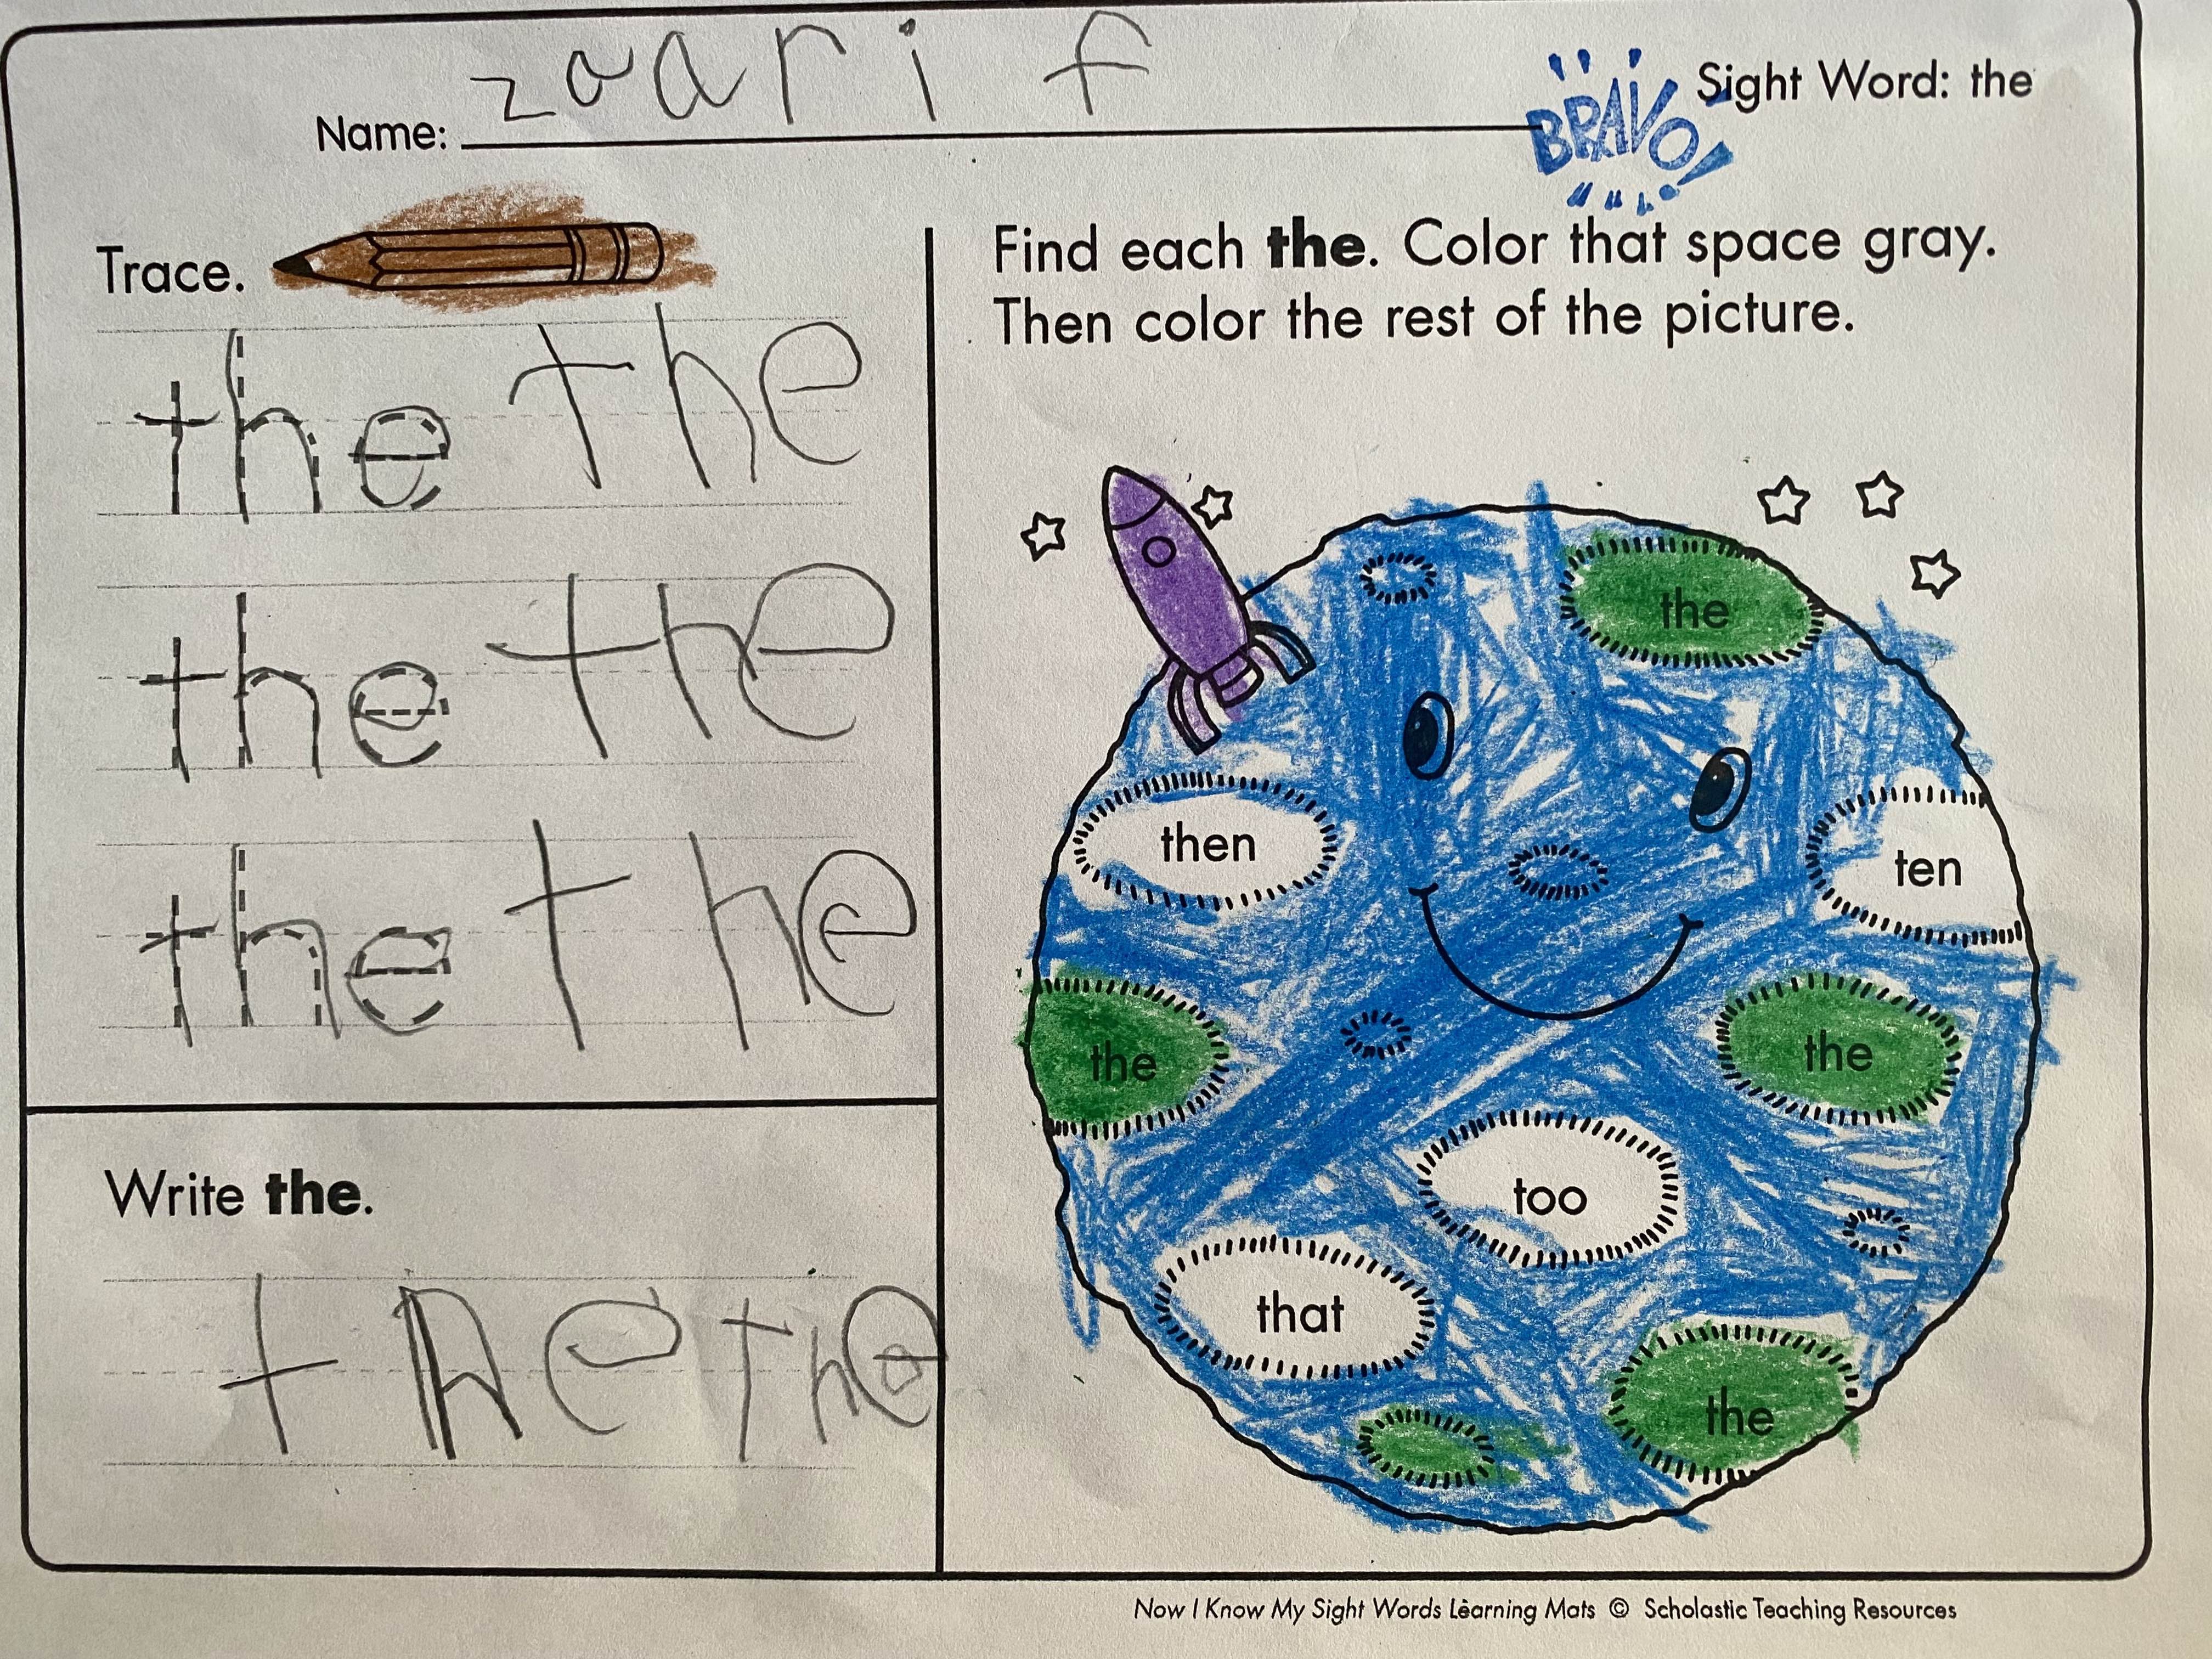 zoarif
Name:
BRAVO!
Sight Word: the
Trace.
the the
the the
the the
Write the.
the the
Find each the. Color that space gray.
Then color the rest of the picture.
the
then
ten
the
the
too
that
the
Now I Know My Sight Words Learning Mats © Scholastic Teaching Resources